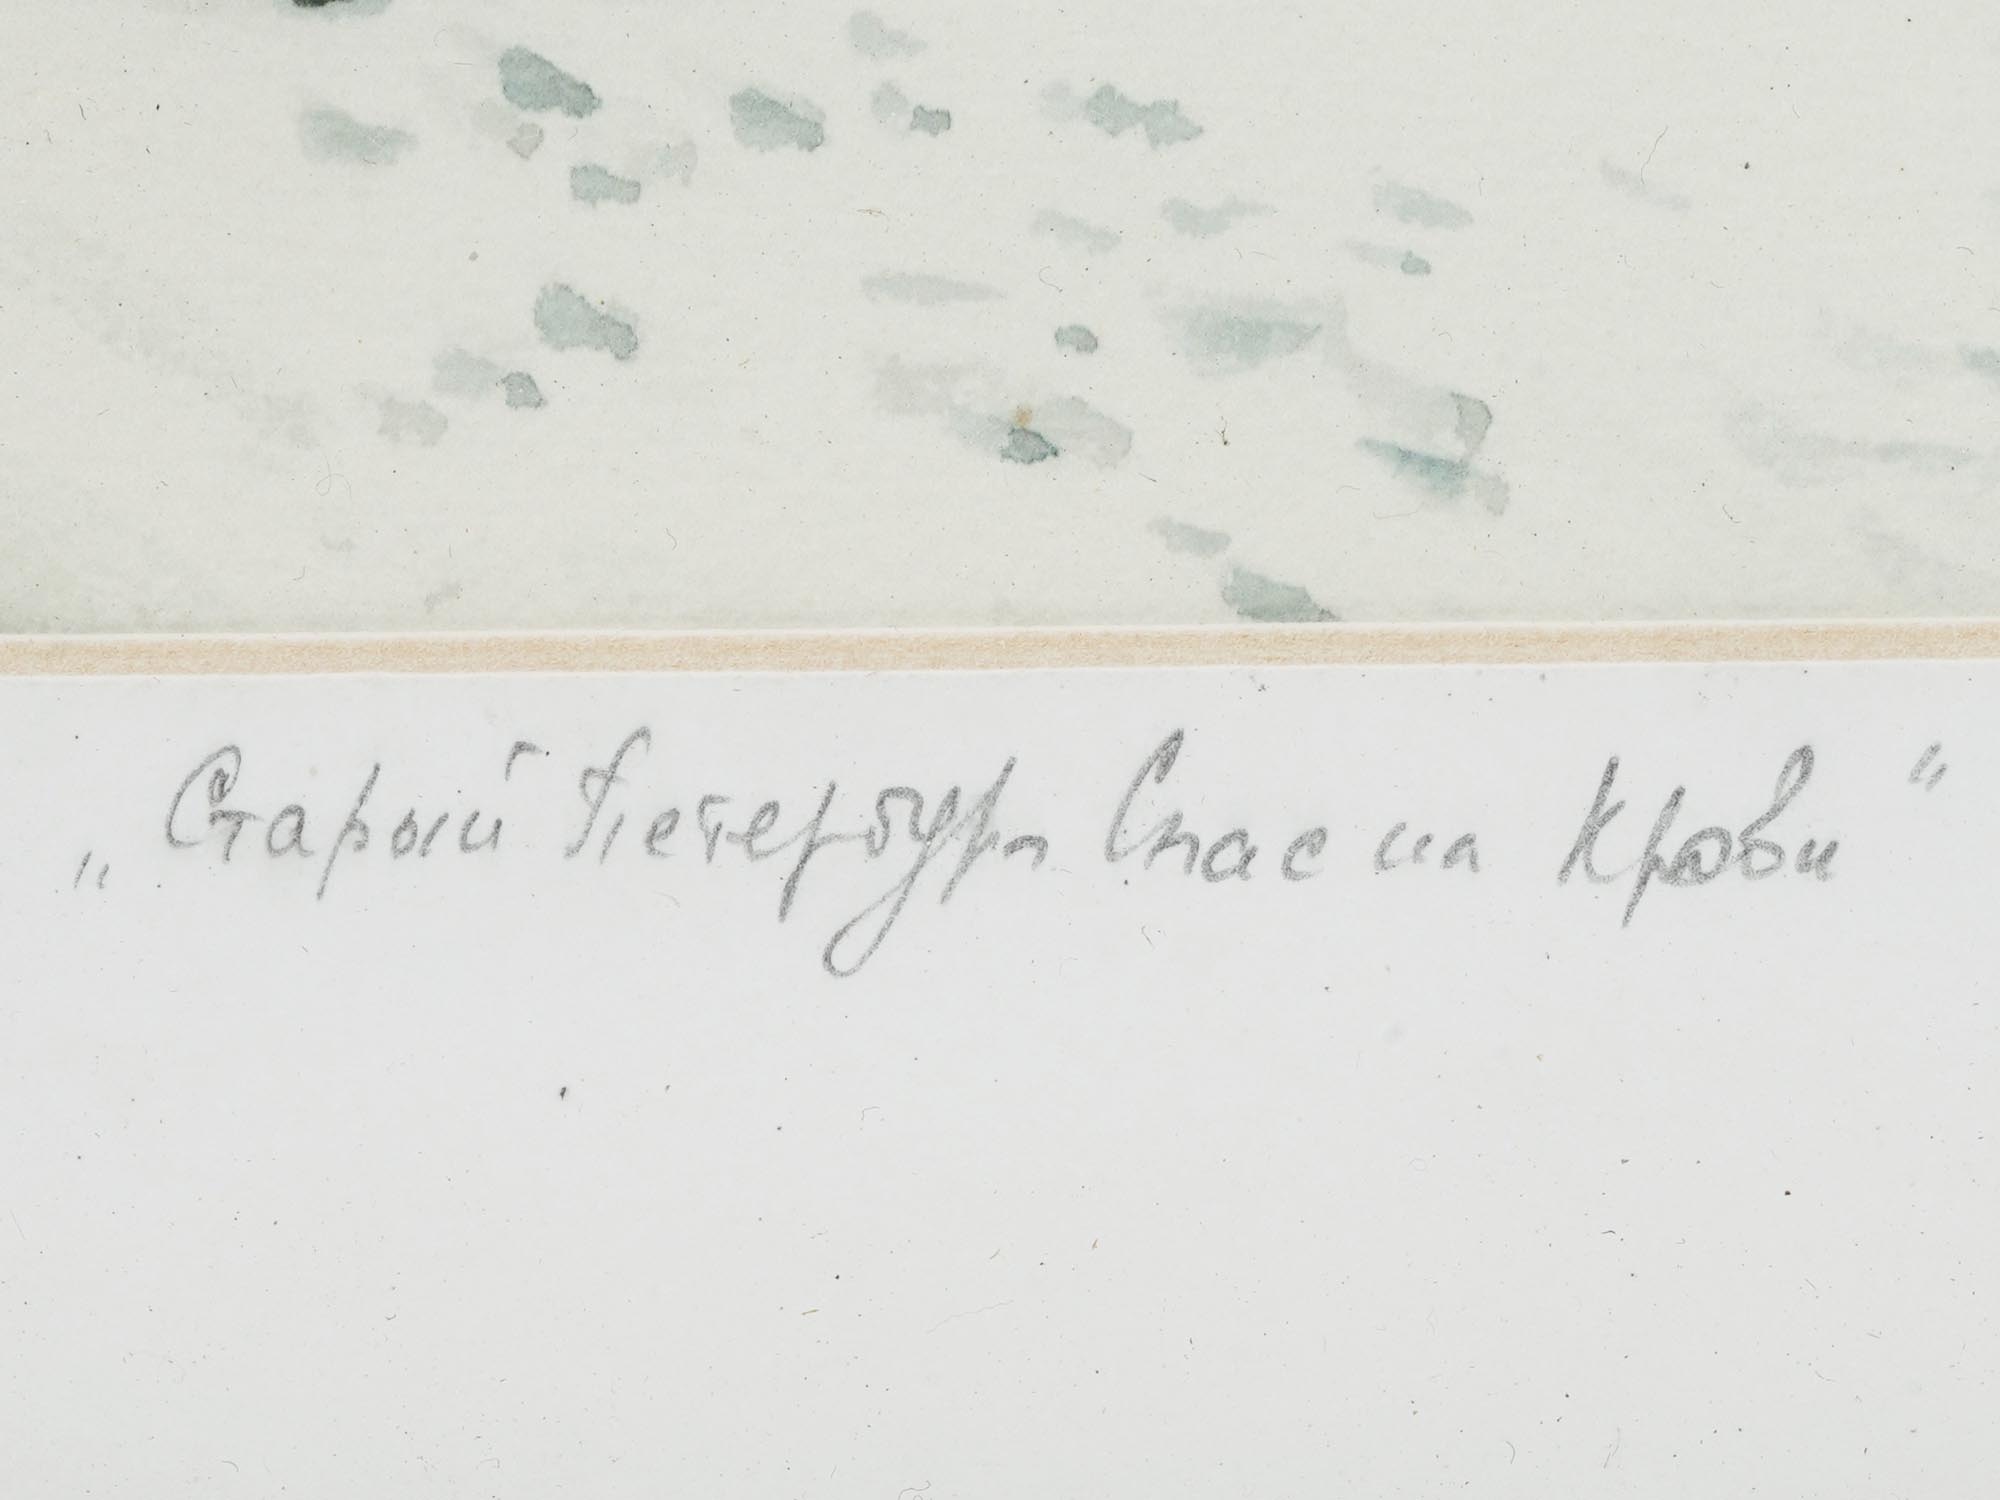 „Старый Петербург Спас на Крови“